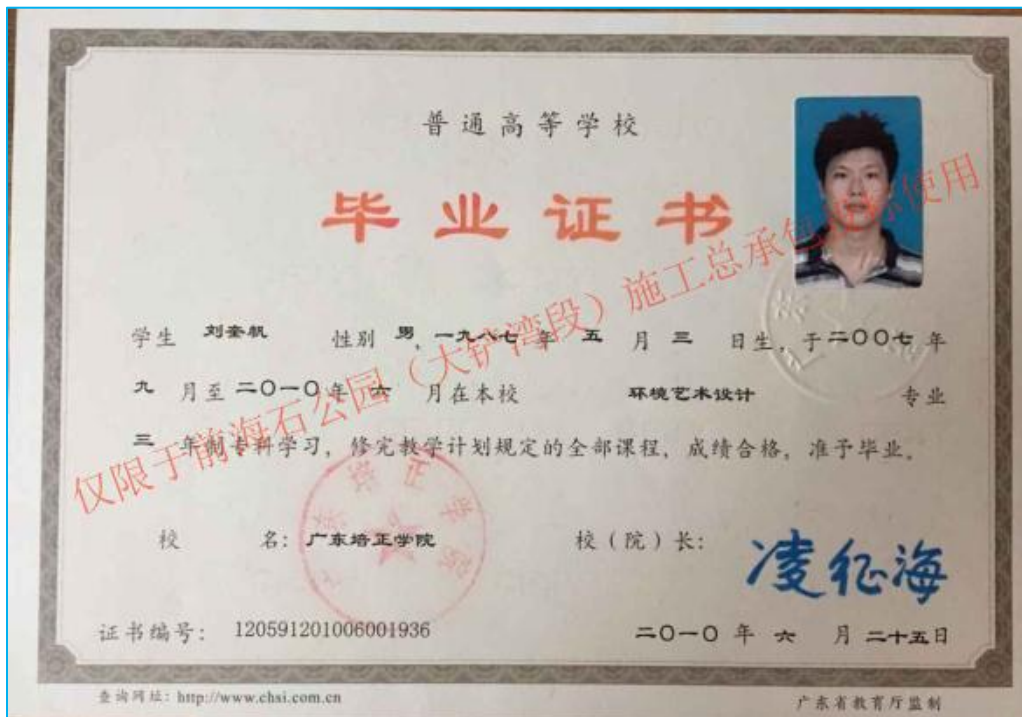 普通高等学校
毕业证书
学生 刘奎帆 性别 男，一九八七年 五 月 三 日生，于二〇〇七年
九 月至二〇一〇年 六 月在本校 环境艺术设计 专业
三 年制专科学习，修完教学计划规定的全部课程，成绩合格，准予毕业。
校 名：广东培正学院 校（院）长：
凌征海
证书编号： 120591201006001936 二〇一〇 年 六 月 二十五日
查询网址：http://www.chsi.com.cn 广东省教育厅监制
仅限于前海石公园（大铲湾段）施工总承包 使用